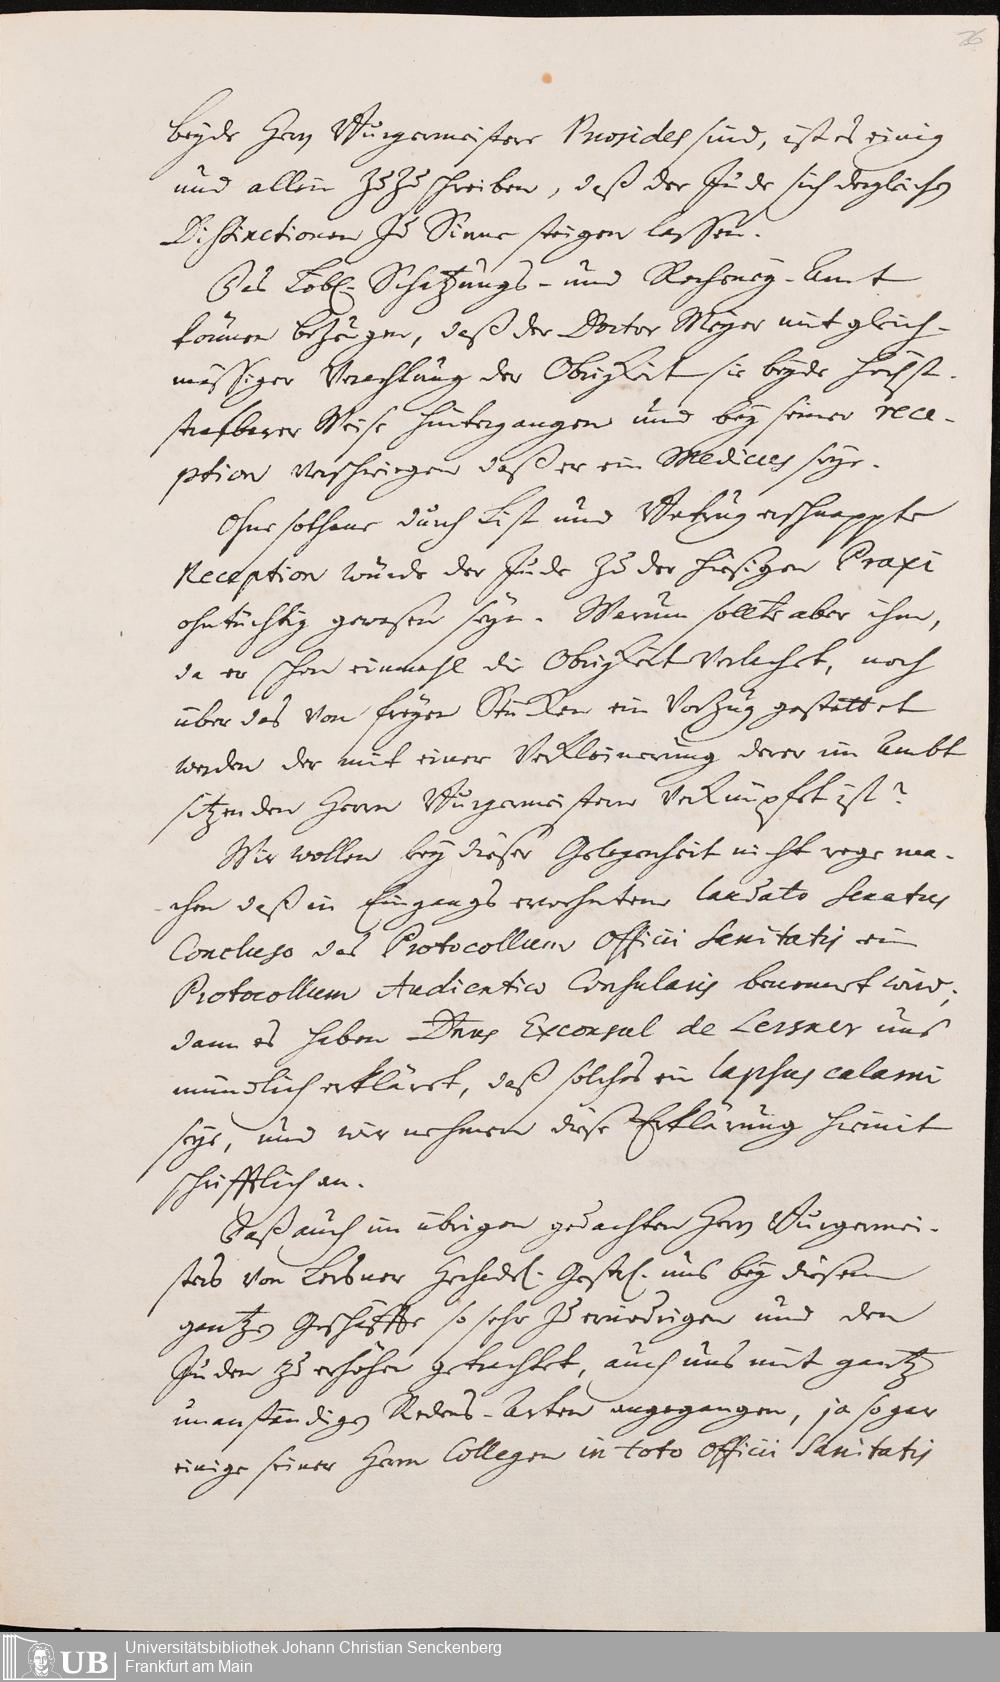 26
beyde Herrn Burgermeistere Praesides sind, ist es einig
und allein zuzuschreiben, daß der Jude sich dergleichen
Distinctionen zu Sinne steigen lassen.
Das Löbl. Schatzungs- und Recheney-Amt
können bezeugen, daß der Doctor Meyer mit gleich-
mäßiger Verachtung der Obrigkeit sie beyde höchst-
strafbarer Weise hintergangen und bey seiner rece-
ption verschwiegen daß er ein Medicus seye.
Ohne solchane durch List und Betrug erschnappte
Reception würde der Jude zu der hiesigen Praxi
ohntüchtig gewesen seyn. Warum sollte aber ihm,
da er schon einmahl die Obrigkeit verlachet, noch
über das von freyen Stücken ein Vorzug gestattet
werden der mit einer Verkleinerung derer im Ambt
sitzenden Herrn Burgermeistere verknüpfet ist?
Wir wollen bey dieser Gelegenheit nicht rege ma-
chen daß in Eingangs erwehntem laudato Senatus
Concluso das Protocollum Officii Sanitatis ein
Protocollum Audientiae Consularis benennet wird;
dann es haben Dnus Exconsul de Lersner uns
mündlich erkläret, daß solches ein lapsus calami
seye, und wir nehmen diese Erklärung hiemit
schrifftlich an.
Daß auch im übrigen gedachten Herrn Burgermei-
sters von Lersner uns bey diesem
gantzen Geschäffte so sehr zu erniedrigen und den
Juden zu erhöhen getrachtet, auch uns mit gantz
unanständigen Redens-Arten angegangen, ja sogar
einige seiner Herrn Collegen in toto Officii Sanitatis
UB Universitätsbibliothek Johann Christian Senckenberg
Frankfurt am Main